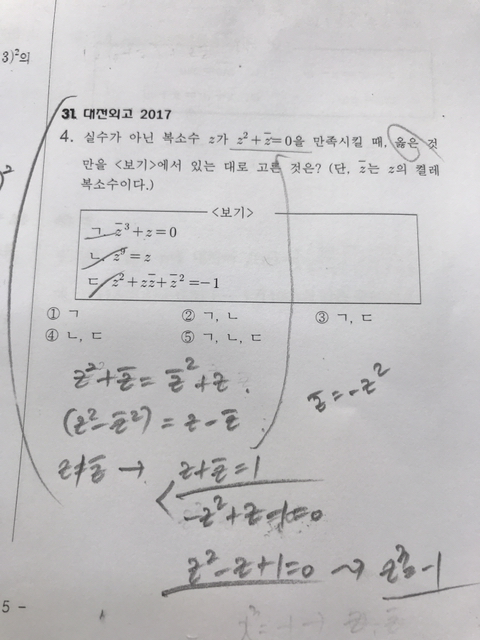 3)²의
31. 대전외고 2017
4. 실수가 아닌 복소수 z가 z²+z̄=0을 만족시킬 때, 옳은 것
만을 <보기>에서 있는 대로 고른 것은? (단, z̄는 z의 켤레
복소수이다.)
<보기>
ㄱ z̄³+z=0
ㄴ z⁹=z
ㄷ z²+zz̄+z̄²=-1
① ㄱ ② ㄱ, ㄴ ③ ㄱ, ㄷ
④ ㄴ, ㄷ ⑤ ㄱ, ㄴ, ㄷ
z²+z̄=z̄²+z.
z̄=-z²
(z²-z̄²)=z-z̄
z≠z̄ → z+z̄=1
z²-z+1=0 → z³=-1
5 -